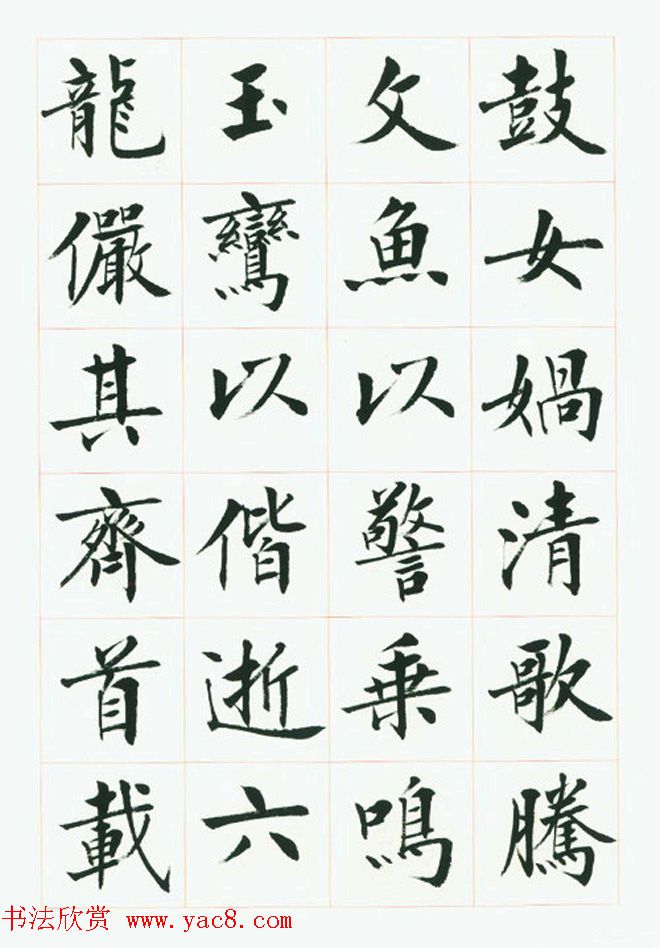 鼓女媧清歌騰
文魚以警乗鳴
玉鸞以偕逝六
龍儼其齊首載
书法欣赏 www.yac8.com